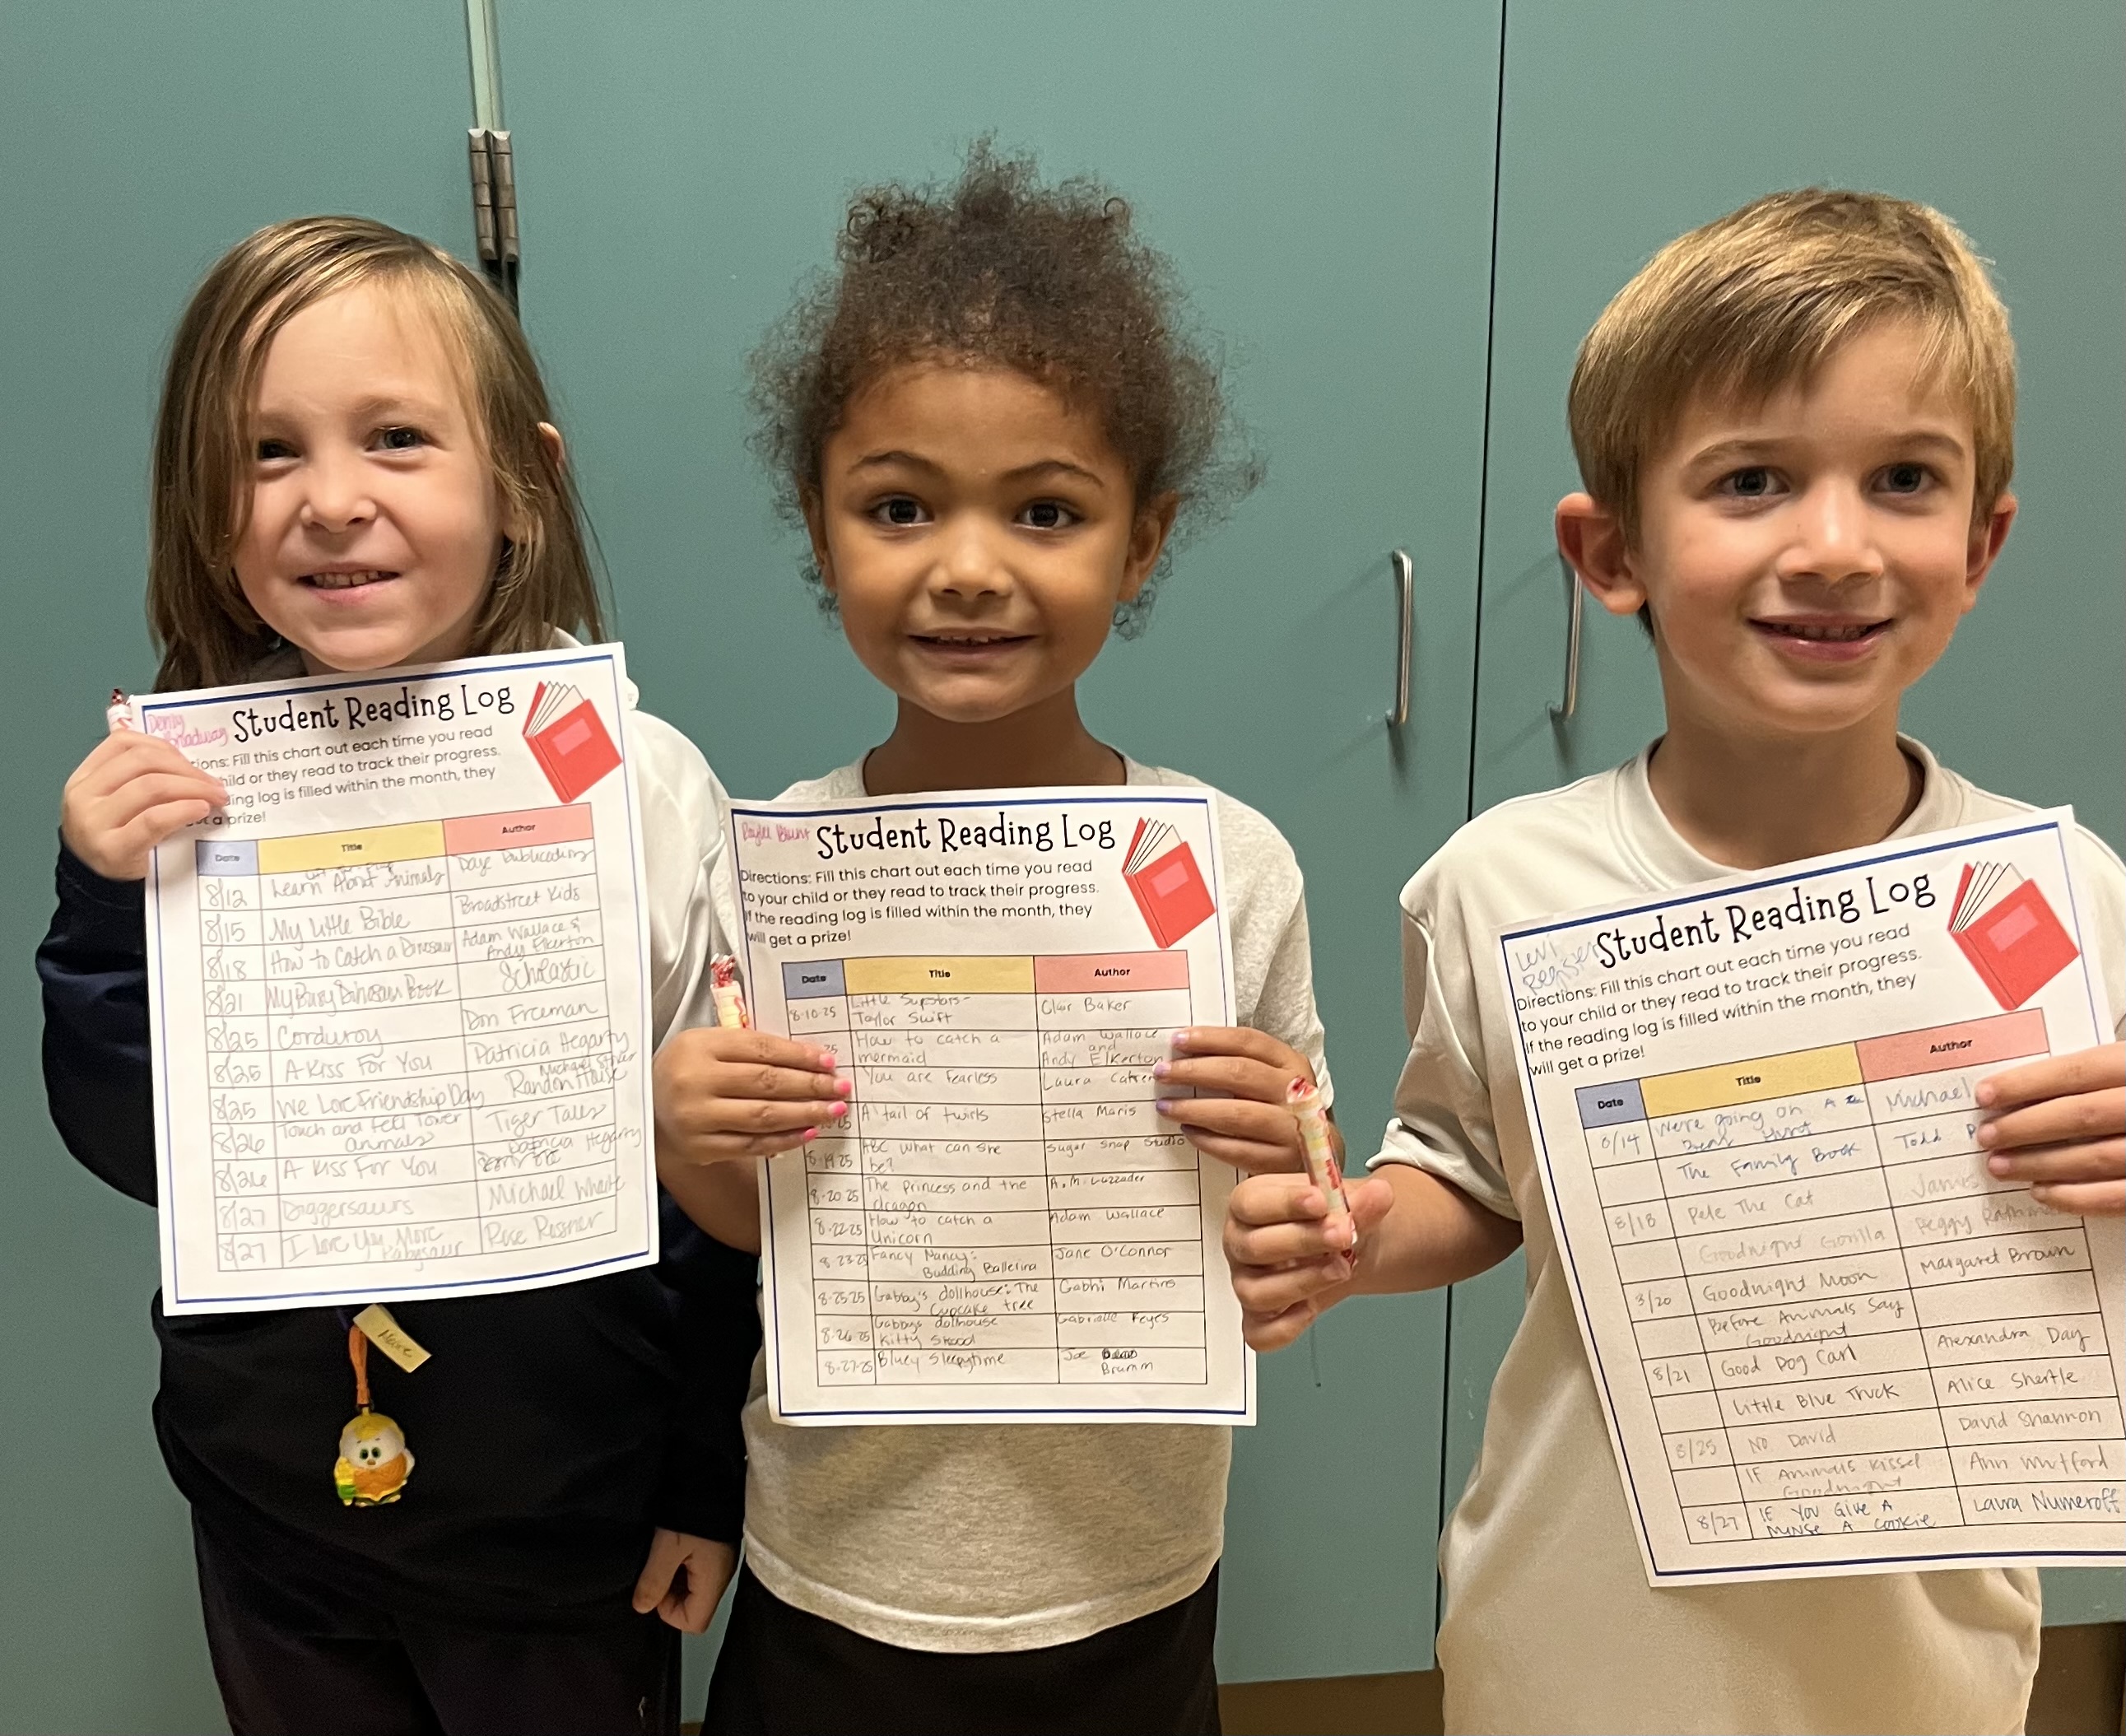 Student Reading Log
ions: Fill this chart out each time you read
hild or they read to track their progress.
ding log is filled within the month, they
a prize!
Date Title Author
8/12 Learn About Animals
8/15 My Little Bible Broadstreet Kids
8/18 How to Catch a Dinosaur Adam Wallace &
Andy Elkerton
8/21 My Busy Dinosaur Book Scholastic
8/25 Corduroy Don Freeman
8/25 A Kiss For You Patricia Hegarty
8/25 We Love Friendship Day Michael
Random House
8/26 Touch and Feel Tower Tiger Tales
animals
8/26 A Kiss For You Patricia Hegarty
8/27 Diggersaurs Michael
8/27 I Love You More Rose Rossner
Babysaur
Student Reading Log
Directions: Fill this chart out each time you read
to your child or they read to track their progress.
If the reading log is filled within the month, they
will get a prize!
Date Title Author
8-10-25 Little Supstars- Clair Baker
Taylor Swift
25 How to catch a Adam Wallace
mermaid and
Andy Elkerton
You are fearless Laura
A tail of twirls Stella Maris
8-19-25 ABC what can she Sugar Snap Studio
be?
8-20-25 The Princess and the A.M. Luzzader
dragon
8-22-25 How to catch a Adam Wallace
Unicorn
8-23-25 Fancy Nancy: Jane O'Connor
Budding Ballerina
8-25-25 Gabby's dollhouse: The Gabhi Martins
Cupcake tree
8-26-25 Gabbys dollhouse Gabrielle Reyes
Kitty
8-27-25 Bluey Sleepytime Joe
Brumm
Levi
Student Reading Log
Directions: Fill this chart out each time you read
to your child or they read to track their progress.
If the reading log is filled within the month, they
will get a prize!
Date Title Author
8/14 We're going on A Michael
Bear Hunt
The Family Book Todd P
8/18 Pete The Cat James
Goodnight Gorilla Peggy Rathm
8/20 Goodnight Moon Margaret Brown
Before Animals Say
Goodnight
8/21 Good Dog Carl Alexandra Day
Little Blue Truck Alice Shertle
8/25 No David David Shannon
IF Animals Kissed Ann
Goodnight
8/27 IF YOU GIVE A Laura Numeroff
A COOKIE